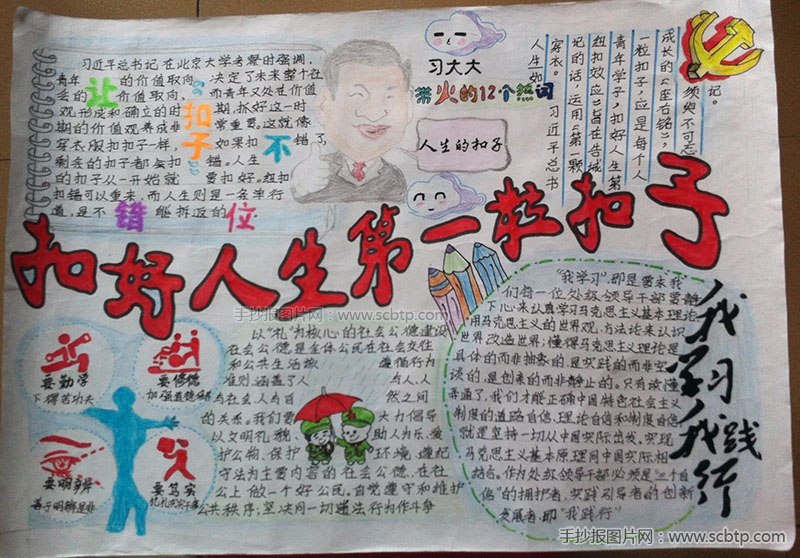 习近平总书记在北京大学考察时强调,
青年 的价值取向 决定了未来整个社
会的 价值取向, 而青年又处在价值
观形成和确立的时 期,抓好这一时
期的价值观养成非 常重要。这就像
穿衣服扣扣子一样, 如果 扣错了,
剩余的扣子都会扣 错。人生
的扣子从一开始就 要扣好。扣扣
扣错可以重来,而人生则是一条单行
道,是不 能拆返的。
让
扣子
不
错
位
习大大
常火的12个热词
人生的扣子
记。
须臾不可忘
成长的《座右铭》,
一粒扣子,应是每个人
青年学子,扣好人生第
纽扣效应》旨在告诫
记的话,运用《第一颗
穿衣。 习近平总书
人生如
扣好人生第一粒扣子
要勤学
下得苦功夫
要修德
加强道德修养
要明辨
善于明辨是非
要笃实
扎扎实实干事
以“礼”为核心的社会公德建设
社会公德是全体公民在社会交往
和公共生活 遵循行为
准则涵盖了人 与人,人
与社会人与自 然之间
的关系。我们要 大力倡导
以文明礼貌, 助人为乐,爱
护公物,保护 环境,遵纪
守法为主要内容的社会公德,在社
公上做一个好公民。自觉遵守和维护
公共秩序;坚决同一切违法行为作斗争
“我学习”,即是需求我
们每一位处级领导干部要静
下心来认真学习马克思主义基本理论,
用马克思主义的世界观,方法论来认识
世界改造世界;懂得马克思主义理论是
具体的而非抽象的,是实践的而非空
谈的,是创来的而非静止的。只有读懂
弄通了,我们才能正确中国特色社会主义
制度的道路自信、理论自信和制度自信,
就是坚持一切从中国实际出发,实现
马克思主义基本原理同中国实际相
结合。作为处级领导干部必须是“三个自
信”的拥护者,实践引导者的创新
发展者,即“我践行”
我学习我践行
手抄报图片网:www.scbtp.com
手抄报图片网:www.scbtp.com